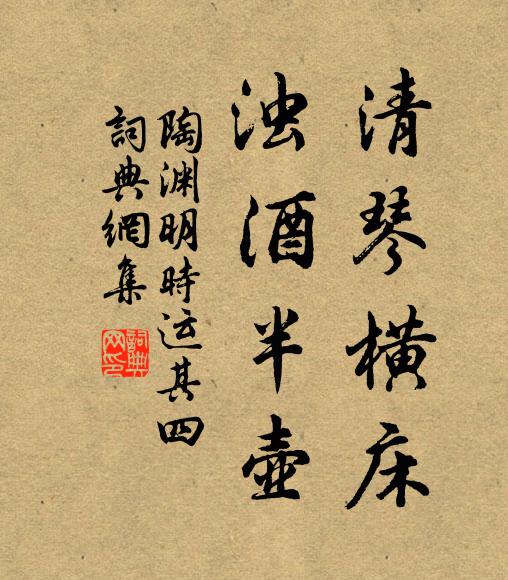 清琴横床
浊酒半壺
陶渊明時运其四
詞典網集
詞典网印